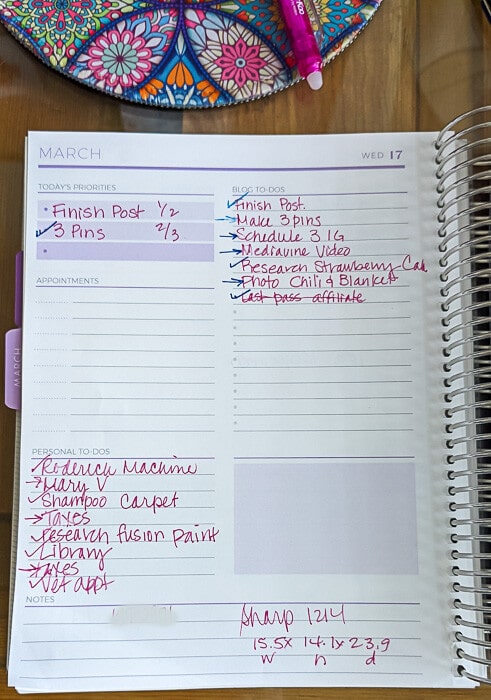 MARCH
WED 17
TODAY'S PRIORITIES
Finish Post 1/2
3 Pins 2/3
APPOINTMENTS
BLOG TO-DOS
Finish Post.
Make 3 pins
Schedule 3 IG
Mediavine Video
Research Strawberry Cak
Photo Chili & Blanket
Last pass affiliate
MARCH
PERSONAL TO-DOS
Roderick Machine
Mary V
Shampoo Carpet
Taxes
research fusion paint
Library
Taxes
Vet appt
NOTES
Sharp 1214
15.5 x 14.1 x 23.9
w h d